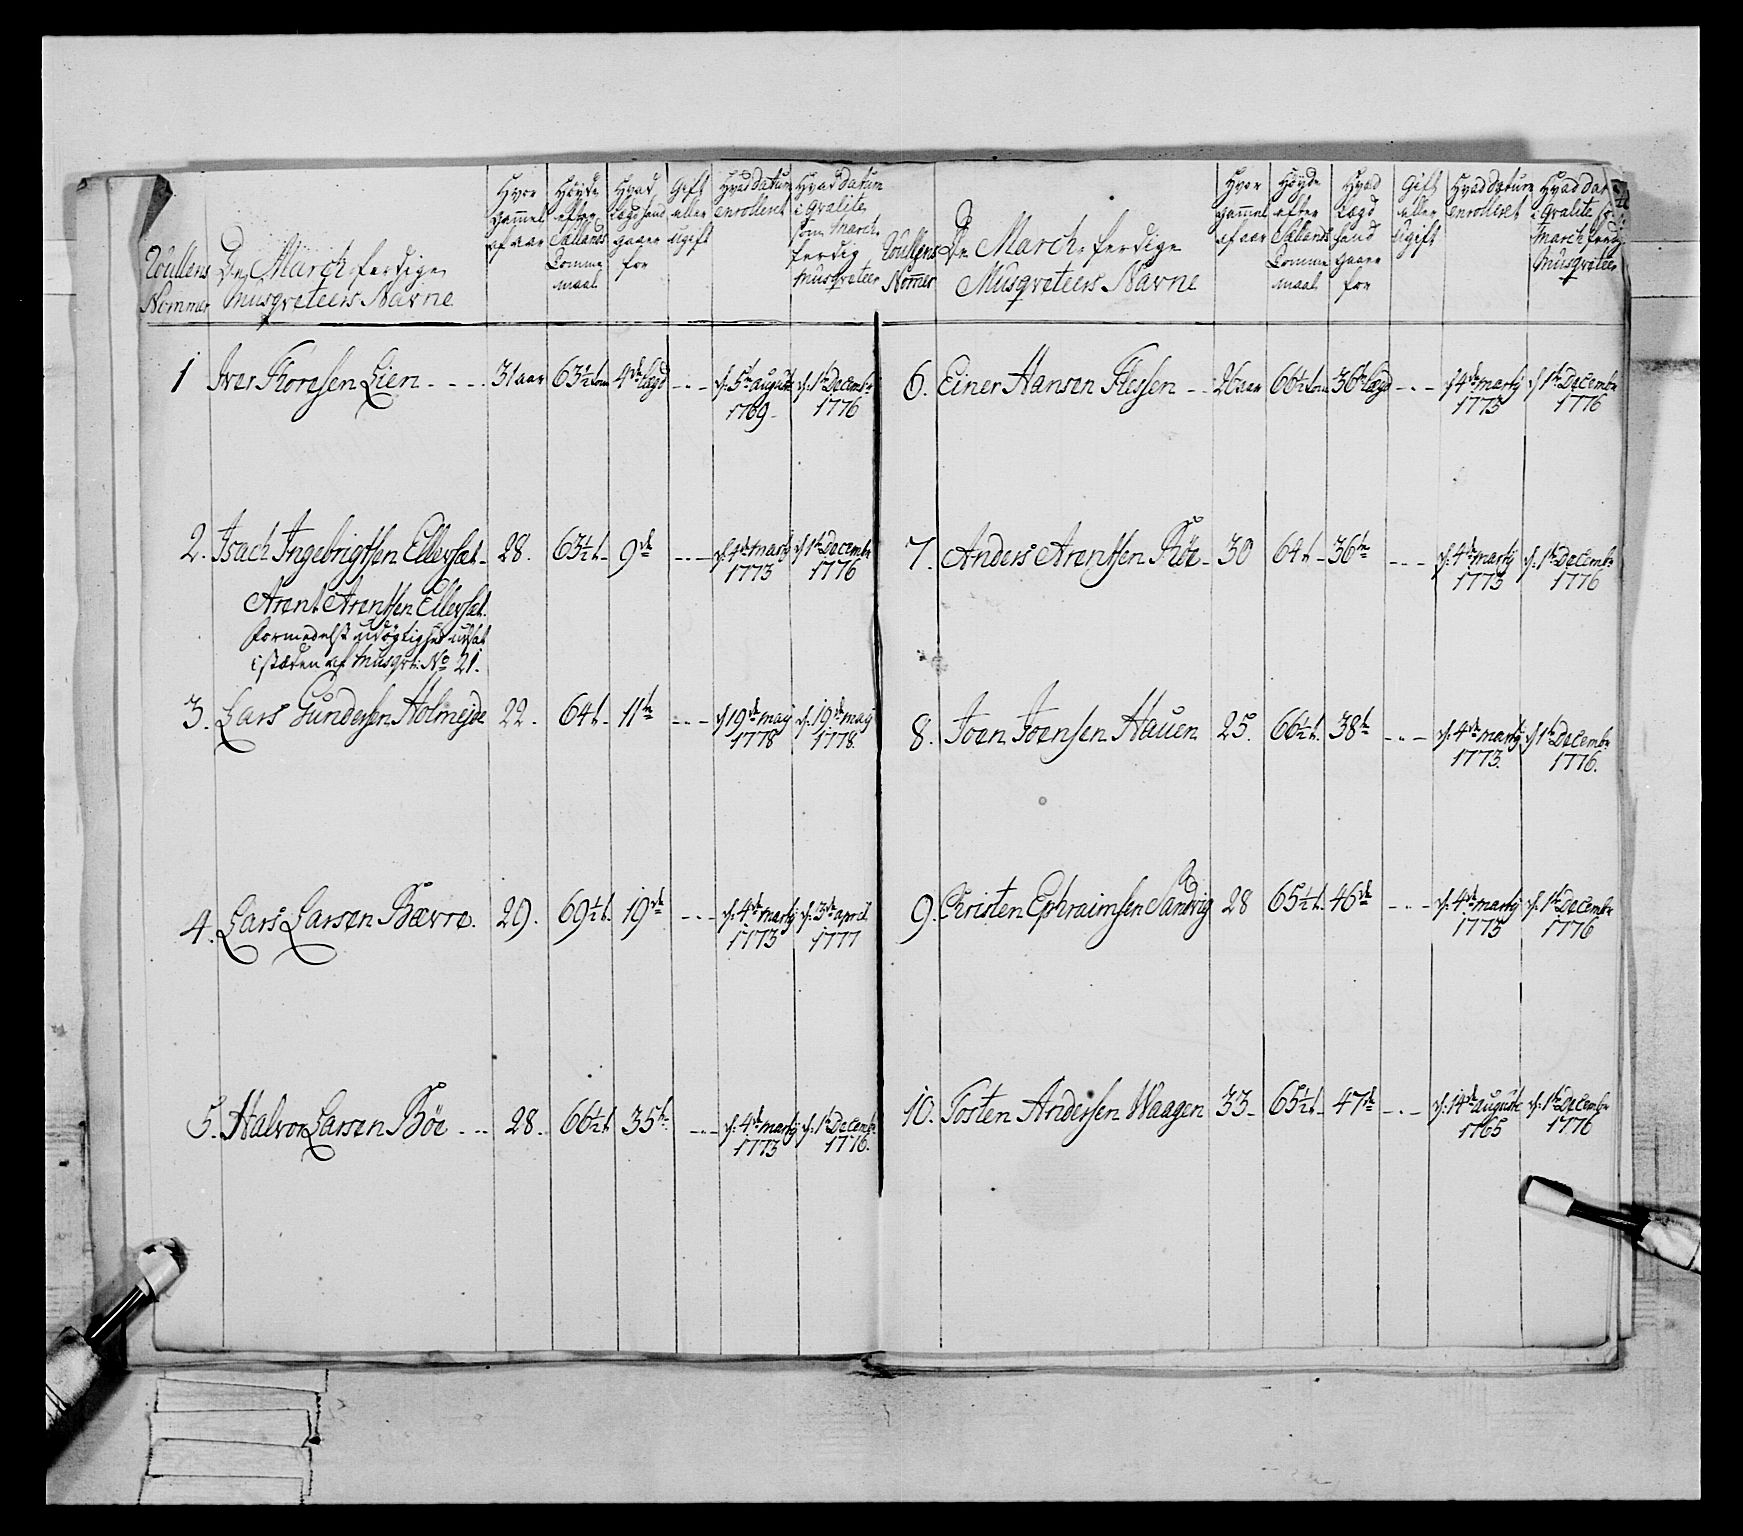 Rullens Nommer
De March-ferdige Musqveteers Navne
Hvor gammel af aar
Høyde efter Siællands Tomme maal
Hvad Lægd hand gaaer for
Gift eller Ugift
Hvad Datum enrolleret
Hvad Datum i Qvalite som March-ferdig Musqveteer
1 Iver Thoresen Lien - - - - 31 aar 63½ tom 4de Lægd - - - d. 5te august 1769. d. 1te Decembr 1776
2. Isach Ingebrigtsen Ellevset - 28. 63½ t. 9de - - - d. 4de martÿ 1773 d. 1te Decembr 1776
Arent Arentsen Ellevset.
formedelst udøgtighed udsat
i stæden af Musqt: No 21.
3. Lars Gundersen Holmejde 22. 64 t. 11te - - - d. 19de maÿ 1778 d. 19de maÿ 1778.
4. Lars Larsen Bævre. 29. 69½ t. 19de - - - d. 4de martÿ 1773 d. 3de april 1777
5. Halvor Larsen Bøe - - - 28. 66½ t. 35te - - - d. 4de martÿ 1773 d. 1te Decembr 1776.
Rullens Nomer
De March-ferdige Musqveteers Navne
Hvor gammel af aar
Høyde efter Siællands Tomme maal
Hvad Lægd hand gaaer for
Gift eller Ugift
Hvad Datum enrolleret
Hvad Datum i Qvalite som March ferdig Musqveteer
6. Einer Hansen Flessen - - 26 aar 66½ tom 36te Lægd - - - d. 4de martÿ 1773 d. 1te Decembr 1776
7. Anders Arentsen Røe - 30 64 t. 36te - - - d. 4de martÿ 1773 d. 1te Decembr 1776
8. Joen Joensen Hauen 25. 66½ t. 38te - - - d. 4de martÿ 1773. d. 1te Decembr 1776.
9. Christen Ephraimsen Sandvig 28 65½ t. 46de - - - d. 4de martÿ 1773 d. 1te Decembr 1776
10. Tosten Andersen Waagen 33 - 65½ t. 47de - - - d. 14de august 1765 d. 1te Decembr 1776